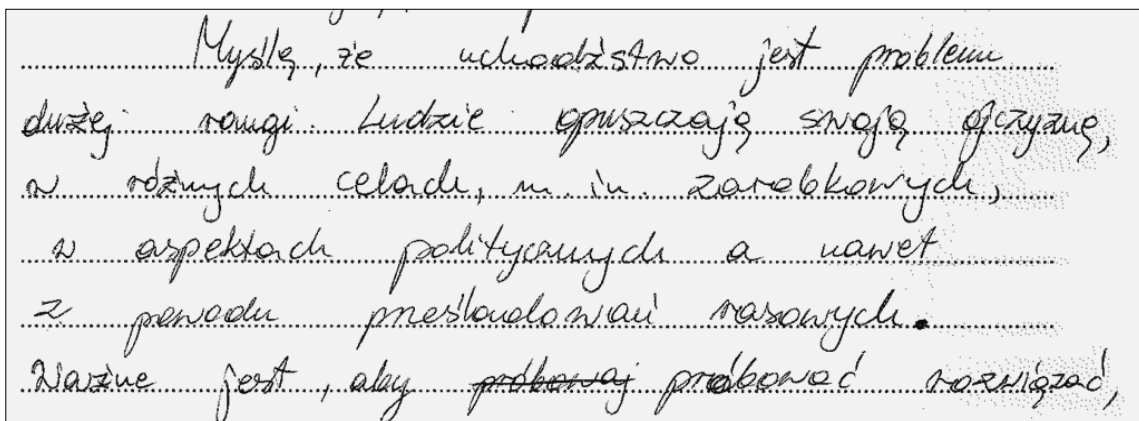 Myślę, że uchodźstwo jest problem
dużej rangi. Ludzie opuszczają swoją ojczyznę,
w różnych celach, m. in. zarobkowych,
w aspektach politycznych a nawet
z powodu prześladowań rasowych.
Ważne jest, aby próbowaj próbować rozwiązać,